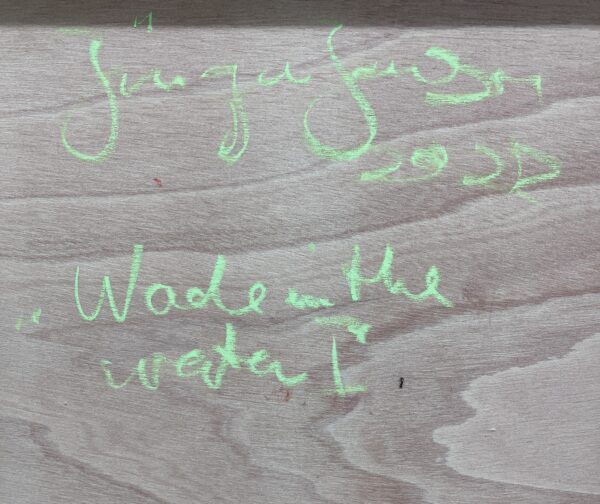 Jürgen Jansen
2022
„Wade in the
water I“